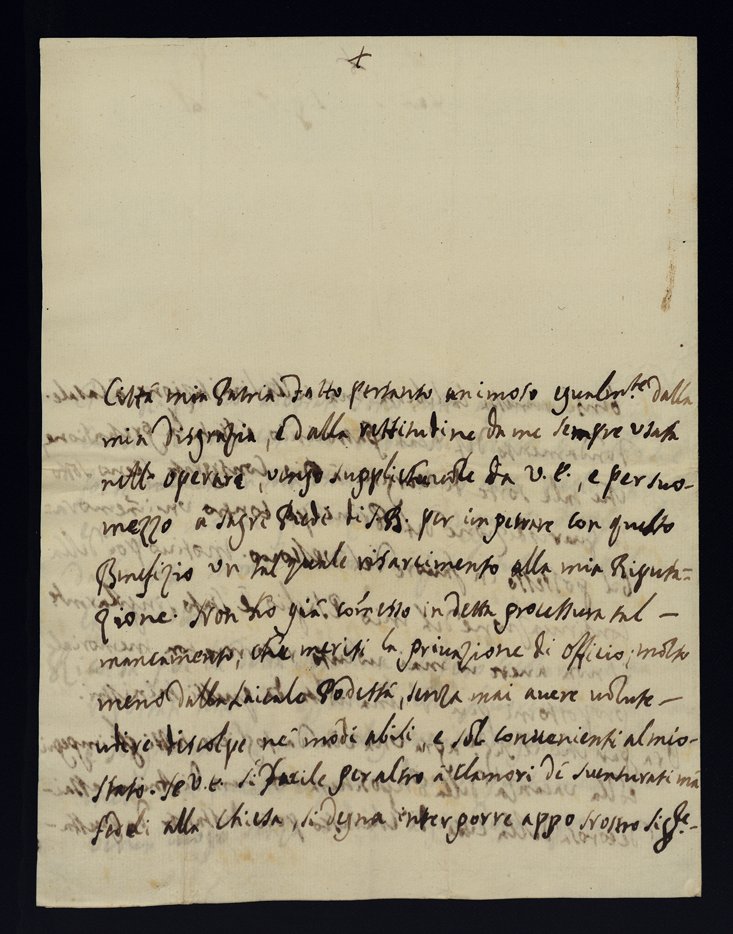 +
Città mia Patria. Fatto pertanto animoso egualm.te dalla
mia disgrazia, e dalla rettitudine da me sempre usata
nell' operare, vengo supplichevole da V. E., e per suo-
mezzo a sagri Piedi di S. B. per impetrare con questo
Benefizio un tal quale risarcimento alla mia Riputa=
zione. Non ho già comesso in detta processura tal –
mancamento, che meriti la privazione di officio, molto
meno dalla Laicale Podestà, senza mai avere volute –
udire discolpe ne' modi abili, e sol convenienti al mio-
stato. Se V. E. sì facile per altro a' Clamori de' sventurati mà
fedeli alla Chiesa, si degna interporre appo Nostro Sig.re-